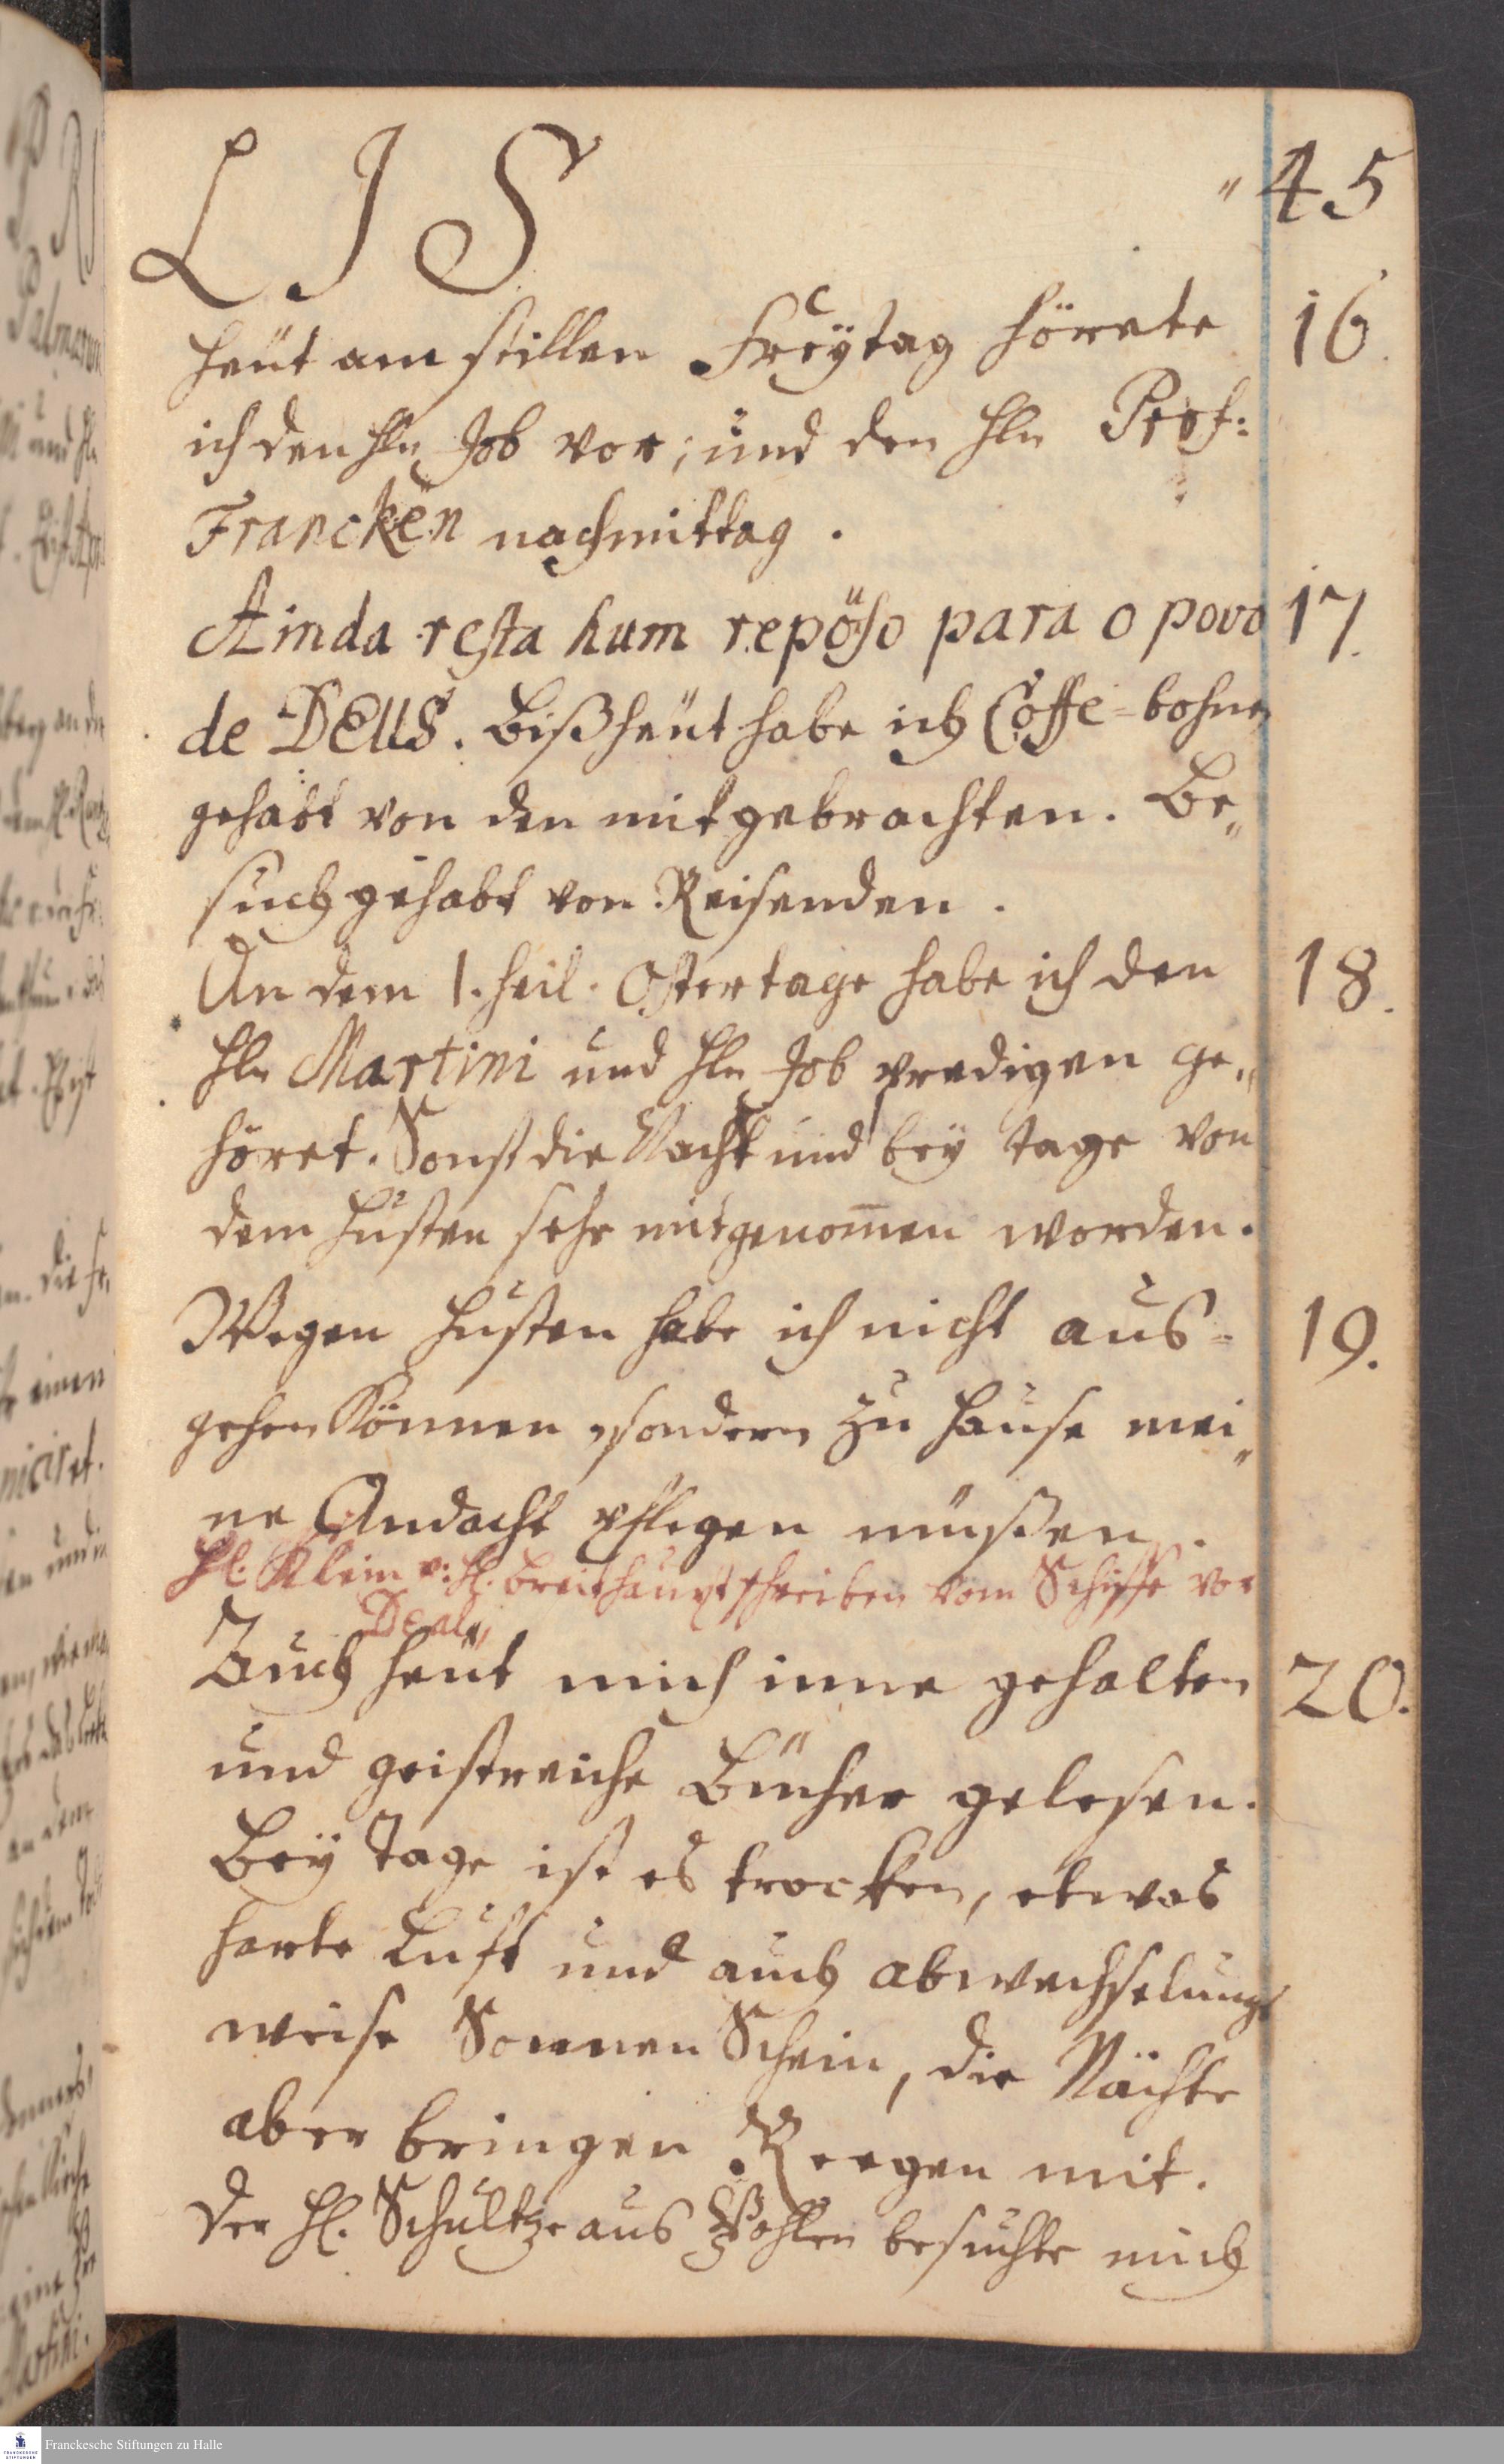 LIS
" 45
heüt am stillen Freÿtag hörete 16.
ich den Hln Job vor; und den Hln Prof:
Francken nachmittag.
Ainda resta hum repöso para o povo 17.
de DEUS. Bißheüt habe ich Coffe-bohnen
gehabt von den mitgebrachten. Be„
such gehabt von Reisenden.
An dem 1. heil. Ostertage habe ich den 18.
Hln Martini und Hln Job predigen ge„
höret. Sonst die Nacht und beÿ tage von
dem Husten sehr mitgenom̄en worden.
Wegen Husten habe ich nicht aus= 19.
gehen Können, sondern zu Hause mei„
ne Andacht pflegen müßen.
Hl. Klein u: Hl. Breithaupt schreiben vom Schiffe vor
Deal„
Auch heüt mich inne gehalten 20.
und geistreiche Bücher gelesen.
Beÿ Tage ist es trocken, etwas
harte Luft und auch abwechselungs
weise Sonnen Schein, die Nächte
aber bringen Reegen mit.
Der Hl. Schultze aus Pohlen besuchte mich
Franckesche Stiftungen zu Halle